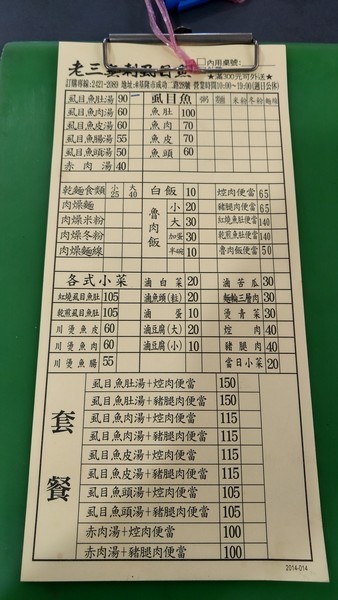 老三無刺虱目魚
內用桌號:
★滿300元可外送★
訂購專線:2421-2089 地址:基隆市成功二路28號 營業時間10:00~19:00(週日公休)
虱目魚肚湯 90
虱目魚肉湯 60
虱目魚皮湯 60
虱目魚腸湯 55
虱目魚頭湯 50
赤肉湯 40
虱目魚 粥 麵 米粉 冬粉 麵線
魚肚 100
魚肉 70
魚皮 70
魚頭 60
乾麵食類 小25 大40
肉燥麵
肉燥米粉
肉燥冬粉
肉燥麵線
白飯 10
魯肉飯
小 20
大 30
加蛋 30
半碗 10
焢肉便當 65
豬腿肉便當 65
紅燒魚肚便當 140
乾煎魚肚便當 140
魯肉飯便當 50
各式小菜
紅燒虱目魚肚 105
乾煎虱目魚肚 105
川燙魚皮 60
川燙魚肉 60
川燙魚腸 55
滷白菜 20
滷魚頭(粒) 20
滷蛋 10
滷豆腐(大) 20
滷豆腐(小) 10
滷苦瓜 30
麵輪三層肉 30
燙青菜 30
焢肉 40
豬腿肉 40
當日小菜 20
套餐
虱目魚肚湯+焢肉便當 150
虱目魚肚湯+豬腿肉便當 150
虱目魚肉湯+焢肉便當 115
虱目魚肉湯+豬腿肉便當 115
虱目魚皮湯+焢肉便當 115
虱目魚皮湯+豬腿肉便當 115
虱目魚頭湯+焢肉便當 105
虱目魚頭湯+豬腿肉便當 105
赤肉湯+焢肉便當 100
赤肉湯+豬腿肉便當 100
2014-014